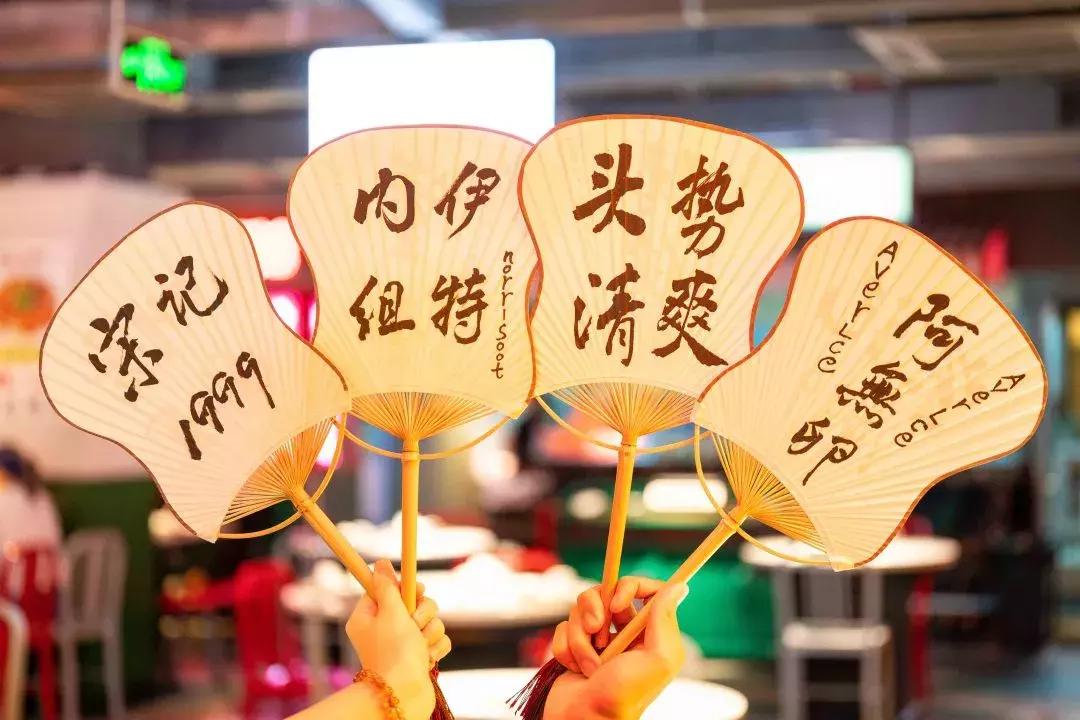 宋记
1999
内伊
组特
norrisoot
头势
清爽
AverLce
阿無
AverLce